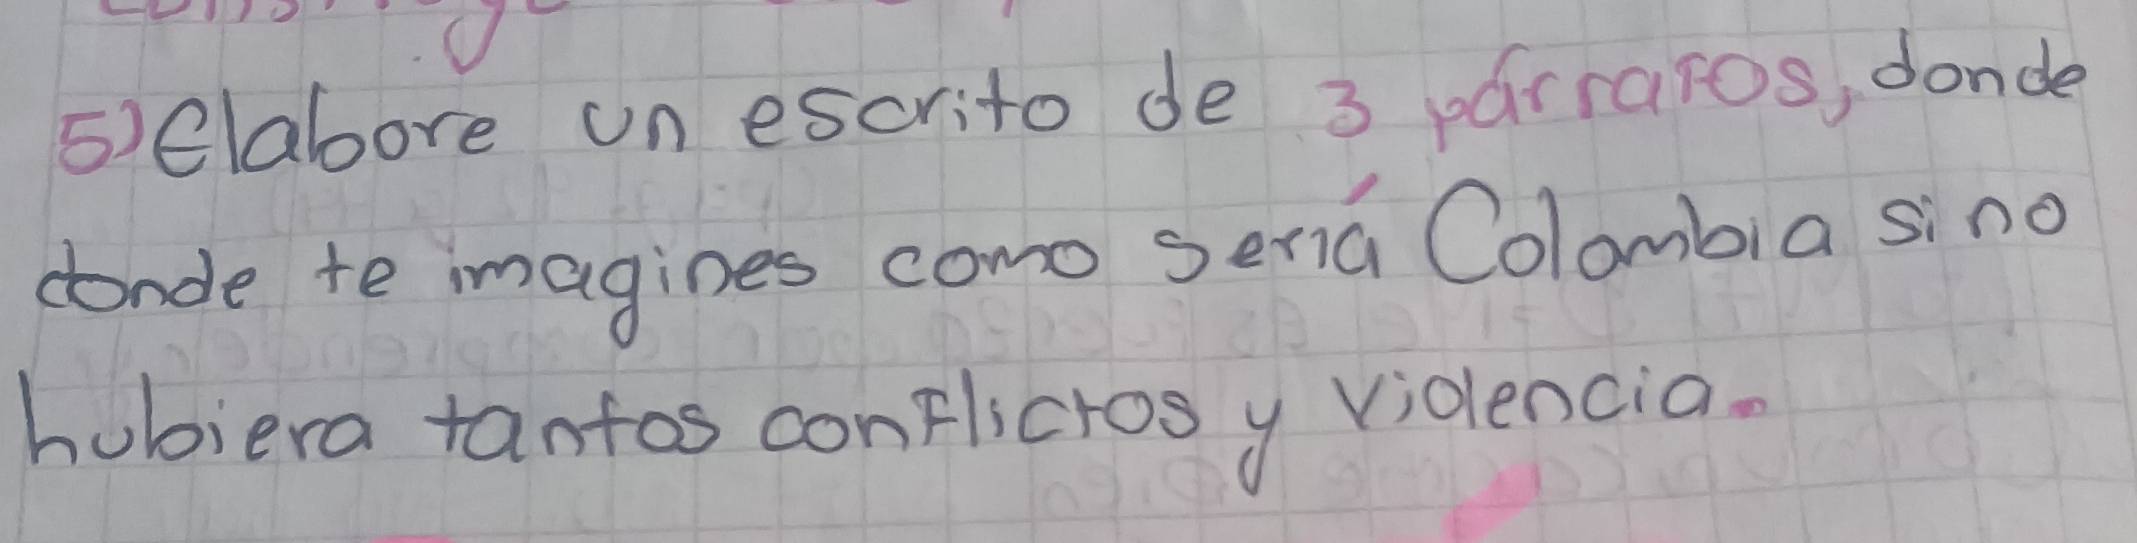 5) Elabore un escrito de 3 párrafos, donde
donde te imagines como sería Colombia si no
hubiera tantos conflictos y violencia.